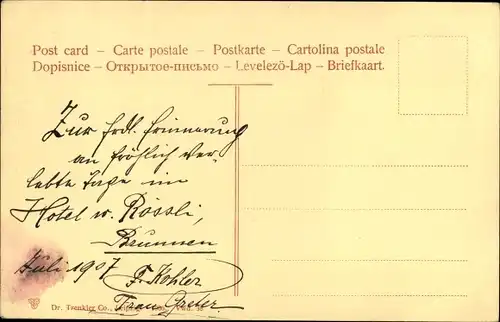 Post card – Carte postale – Postkarte – Cartolina postale
Dopisnice – Открытое-письмо – Levelező-Lap – Briefkaart.
Zur frdl. Erinnerung
an fröhlich ver-
lebte Tage im
Hotel w. Rössli,
Brunnen
Juli 1907
F. Kohler
Dr. Trenkler Co.,